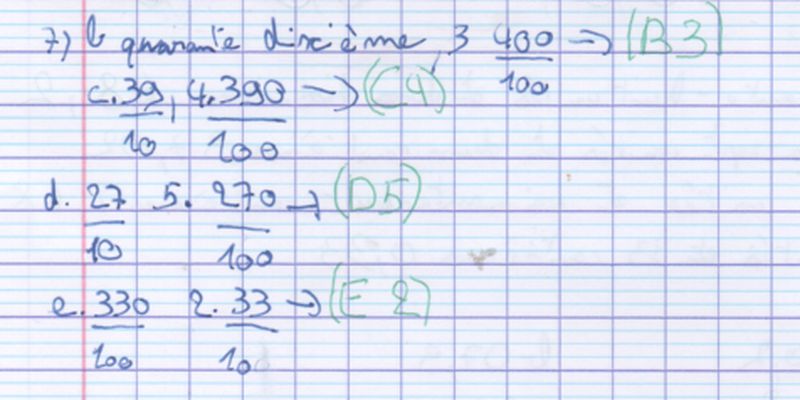 7) b quarante dixième, 3 400/100 → (B3)
c. 39/10, 4. 390/100 → (C4)
d. 27/10 5. 270/100 → (D5)
e. 330/100 2. 33/10 → (E2)